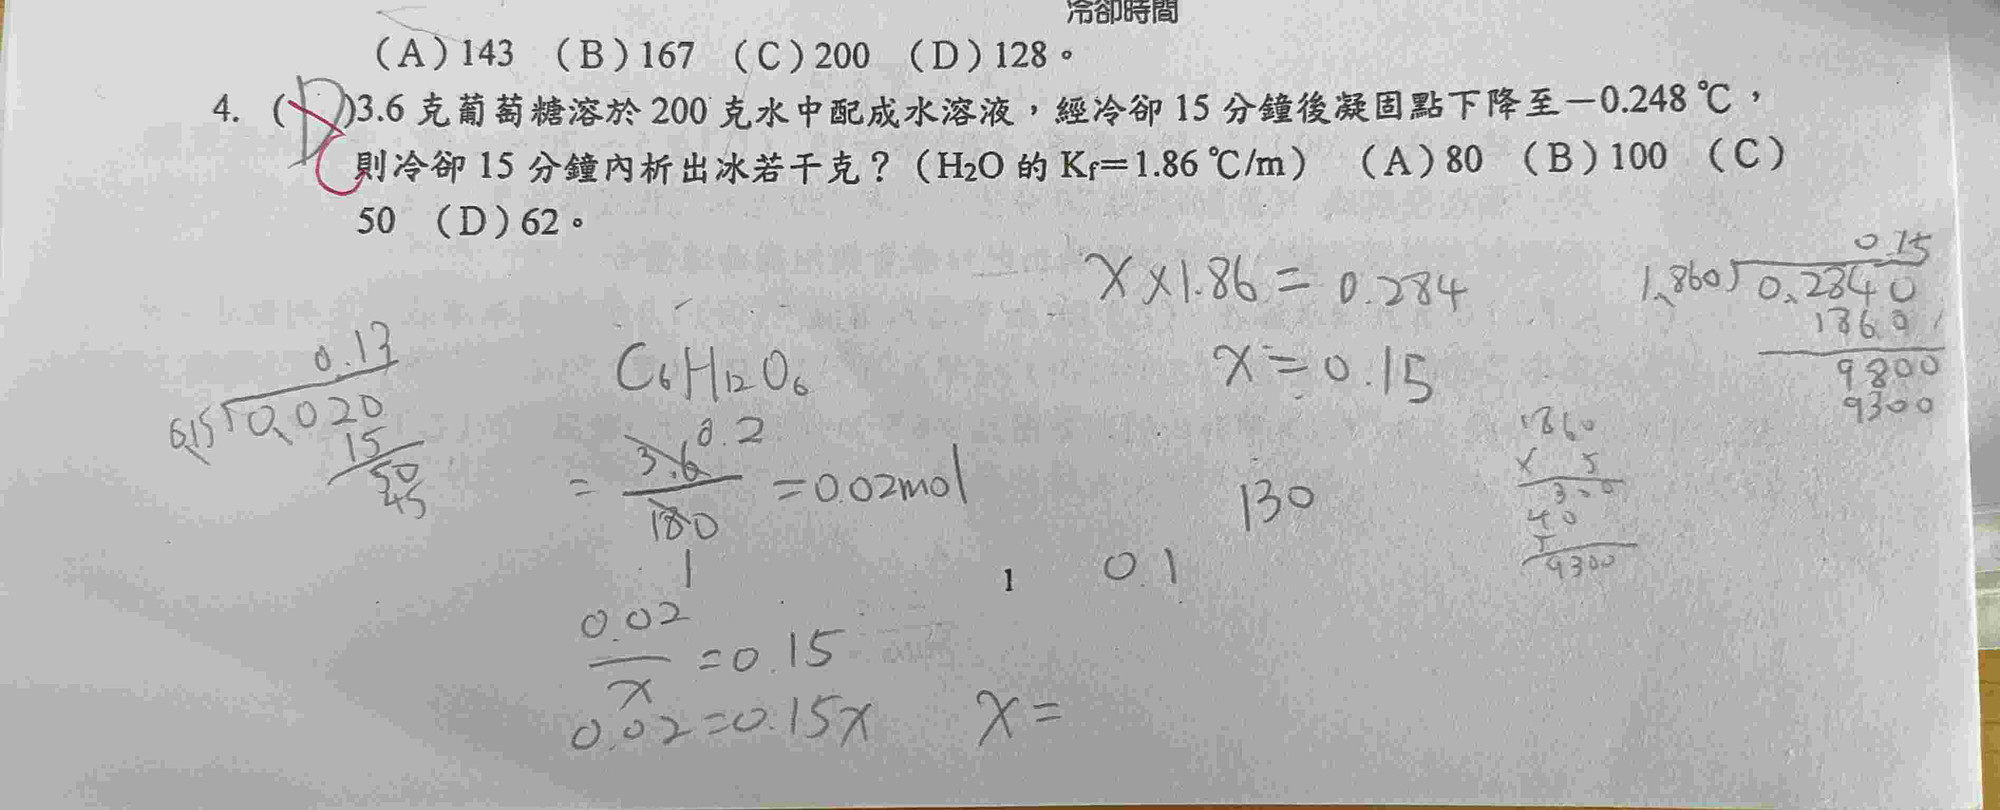 冷卻時間
(A)143 (B)167 (C)200 (D)128。
4. (D)3.6 克葡萄糖溶於 200 克水中配成水溶液，經冷卻 15 分鐘後凝固點下降至－0.248 ℃，
C 則冷卻 15 分鐘內析出冰若干克？(H₂O 的 Kf＝1.86 ℃/m) (A)80 (B)100 (C)
50 (D)62。
x×1.86=0.284
x=0.15
0.15
1.860)0.2840
1860
9800
9300
1860
× 5
300
40
5
9300
0.13
0.15)0.020
15
50
45
C₆H₁₂O₆
=3.6/180=0.02mol
0.2
1
130
0.1
1
0.02/x=0.15
0.02=0.15x x=